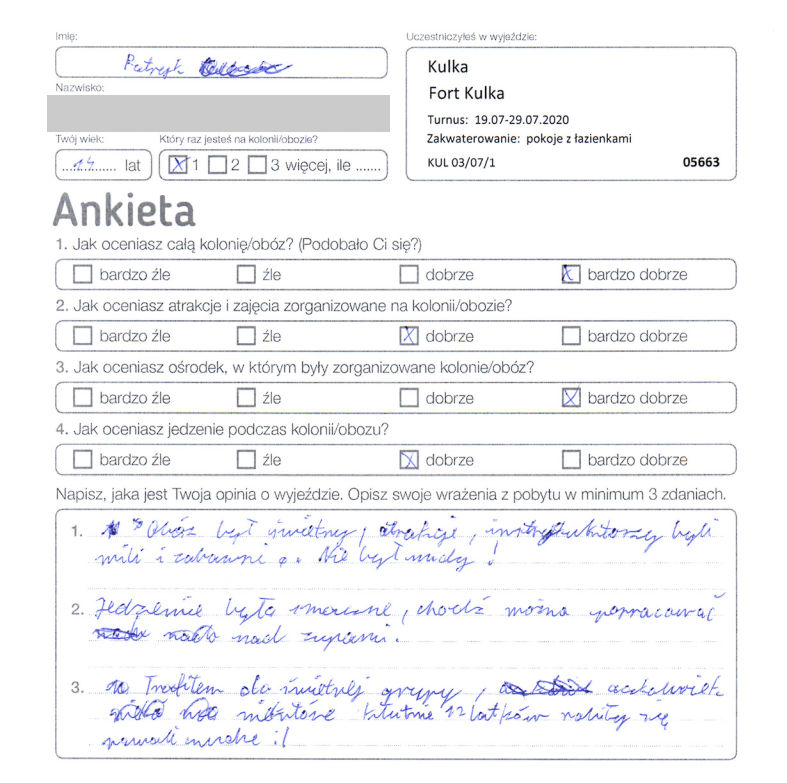 Imię:
Patryk
Uczestniczyłeś w wyjeździe:
Kulka
Fort Kulka
Turnus: 19.07-29.07.2020
Zakwaterowanie: pokoje z łazienkami
KUL 03/07/1 05663
Nazwisko:
Twój wiek:
14 lat
Który raz jesteś na kolonii/obozie?
X 1 2 3 więcej, ile .......
Ankieta
1. Jak oceniasz całą kolonię/obóz? (Podobało Ci się?)
bardzo źle źle dobrze X bardzo dobrze
2. Jak oceniasz atrakcje i zajęcia zorganizowane na kolonii/obozie?
bardzo źle źle X dobrze bardzo dobrze
3. Jak oceniasz ośrodek, w którym były zorganizowane kolonie/obóz?
bardzo źle źle dobrze X bardzo dobrze
4. Jak oceniasz jedzenie podczas kolonii/obozu?
bardzo źle źle X dobrze bardzo dobrze
Napisz, jaka jest Twoja opinia o wyjeździe. Opisz swoje wrażenia z pobytu w minimum 3 zdaniach.
1. Obóz był świetny, atrakcje, instruktorzy byli
mili i zabawni. Nie był nudy!
2. Jedzenie było smaczne, chodź można popracować
nad zupami.
3. Trafiłem do świetnej grupy, aczkolwiek
niektóre 12 latków
:/